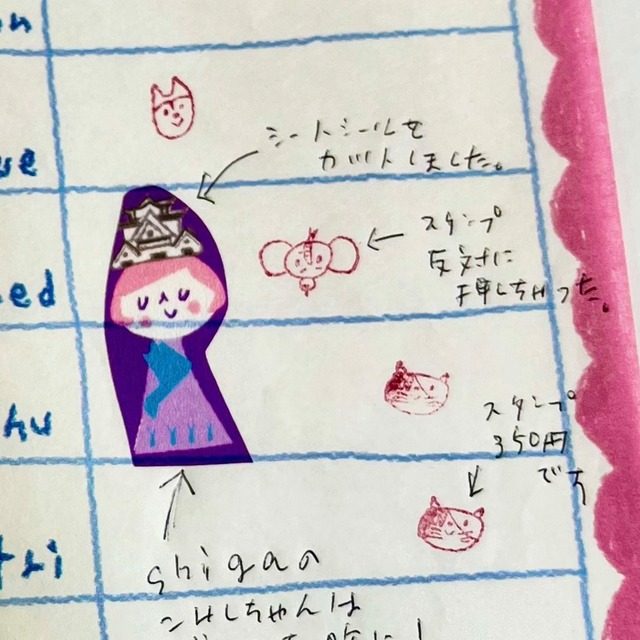 シートシールを
カットしました。
スタンプ
反対に
押しちゃった。
スタンプ
350円
です
shigaの
こけしちゃんは